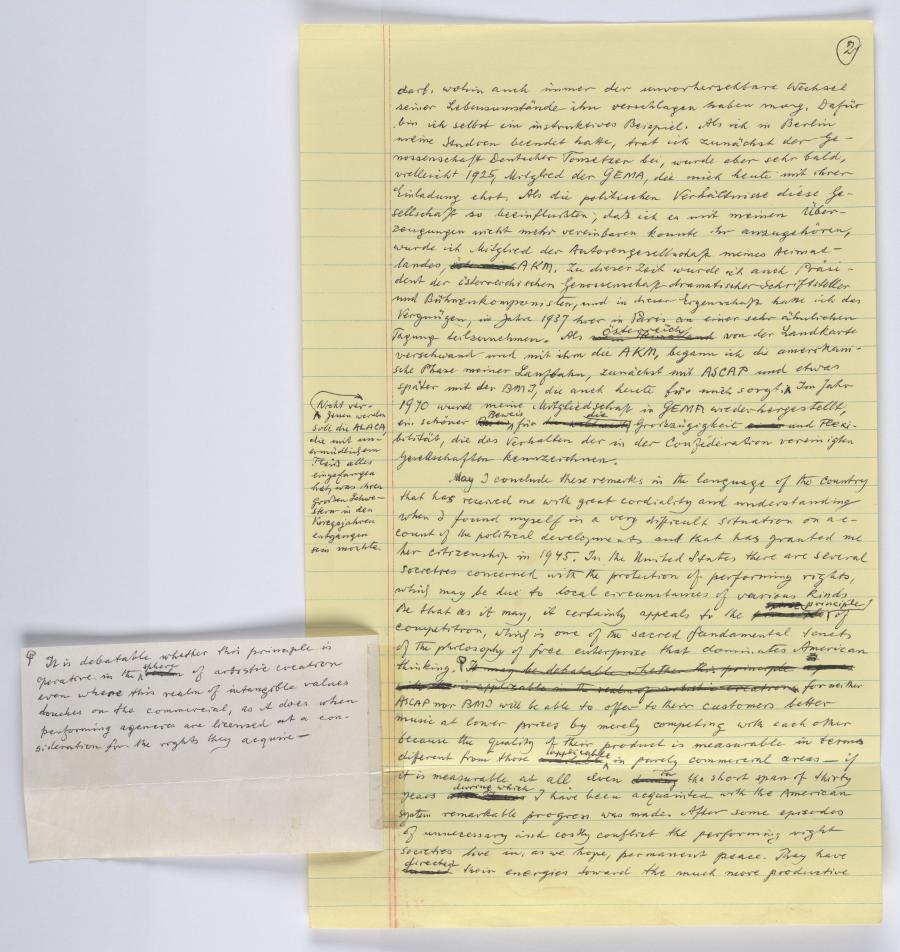 2
darf, wohin auch immer der unvorhersehbare Wechsel
seiner Lebensumstände ihn verschlagen haben mag. Dafür
bin ich selbst ein instruktives Beispiel. Als ich in Berlin
meine Studien beendet hatte, trat ich zunächst der Ge-
nossenschaft Deutscher Tonsetzer bei, wurde aber sehr bald,
vielleicht 1925, Mitglied der GEMA, die mich heute mit ihrer
Einladung ehrt. Als die politischen Verhältnisse diese Ge-
sellschaft so beeinflußten, daß ich es mit meinen Über-
zeugungen nicht mehr vereinbaren konnte ihr anzugehören,
wurde ich Mitglied der Autorengesellschaft meines Heimat-
landes, AKM. Zu dieser Zeit wurde ich auch Präsi-
dent der österreichischen Genossenschaft dramatischer Schriftsteller
und Bühnenkomponisten, und in dieser Eigenschaft hatte ich das
Vergnügen, im Jahre 1937 hier in Paris an einer sehr ähnlichen
Tagung teilzunehmen. Als österreich von der Landkarte
verschwand und mit ihm die AKM, begann ich die amerikani-
sche Phase meiner Laufbahn, zunächst mit ASCAP und etwas
später mit der BMI, die auch heute für mich sorgt. Im Jahr
1970 wurde meine Mitgliedschaft in GEMA wiederhergestellt,
ein schöner Beweis für die Großzügigkeit und Flexi-
bilität, die das Verhalten der in der Confédération vereinigten
Gesellschaften kennzeichnen.
Nicht ver-
gessen werden
soll die ALACA,
die mit un-
ermüdlichem
Fleiß alles
eingefangen
hat, was ihren
großen Schwe-
stern in den
Kriegsjahren
entgangen
sein mochte.
May I conclude these remarks in the language of the country
that has received me with great cordiality and understanding
when I found myself in a very difficult situation on ac-
count of the political developments and that has granted me
her citizenship in 1945. In the United States there are several
societies concerned with the protection of performing rights,
which may be due to local circumstances of various kinds.
Be that as it may, it certainly appeals to the principle of
competition, which is one of the sacred fundamental tenets
of the philosophy of free enterprise that dominates American
thinking. It may be debatable whether this principle
is applicable in the realm of artistic creation, for neither
ASCAP nor BMI will be able to offer to their customers better
music at lower prices by merely competing with each other
because the quality of their product is measurable in terms
different from those applicable in purely commercial areas — if
it is measurable at all. Even in the short span of thirty
years during which I have been acquainted with the American
system remarkable progress was made. After some episodes
of unnecessary and costly conflict the performing right
societies live in, as we hope, permanent peace. They have
directed their energies toward the much more productive
It is debatable whether this principle is
operative in the sphere of artistic creation
even where this realm of intangible values
touches on the commercial, as it does when
performing agencies are licensed at a con-
sideration for the rights they acquire —